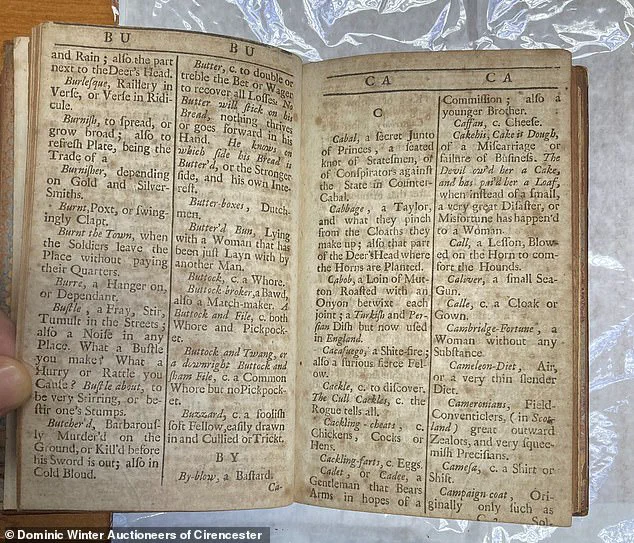 BU BU
and Rain; also the part
next to the Deer's Head.
Burlesque, Raillery in
Verse, or Verse in Ridi-
cule.
Burnish, to spread, or
grow broad; also to
refresh Plate, being the
Trade of a
Burnisher, depending
on Gold and Silver-
Smiths.
Burnt, Poxt, or swing-
ingly Clapt.
Burnt the Town, when
the Soldiers leave the
Place without paying
their Quarters.
Burre, a Hanger on,
or Dependant.
Bustle, a Fray, Stir,
Tumult in the Streets;
also a Noise in any
Place. What a Bustle
you make? What a
Hurry or Rattle you
Cause? Bustle about, to
be very Stirring, or be-
stir one's Stumps.
Butcher'd, Barbarous-
ly Murder'd on the
Ground, or Kill'd before
his Sword is out; also in
Cold Bloud.
Butter, c. to double or
treble the Bet or Wager
to recover all Losses. No
Butter will stick on his
Bread, nothing thrives
or goes forward in his
Hand. He knows on
which side his Bread is
Butter'd, or the Stronger
side, and his own Inte-
rest.
Butter-boxes, Dutch-
men.
Butter'd Bun, Lying
with a Woman that has
been just Layn with by
another Man.
Buttock, c. a Whore.
Buttock broker, a Bawd,
also a Match-maker. A
Buttock and File, c. both
Whore and Pickpock-
et.
Buttock and Twang, or
a downright Buttock and
sham File, c. a Common
Whore but no Pickpock-
et.
Buzzard, c. a foolish
soft Fellow, easily drawn
in and Cullied or Trickt.
BY
By-blow, a Bastard.
Ca-
CA CA
C
Cabal, a secret Junto
of Princes, a seated
knot of Statesmen, or
of Conspirators against
the State in Counter-
Cabal.
Cabbage, a Taylor,
and what they pinch
from the Cloaths they
make up; also that part
of the Deer's Head where
the Horns are Planted.
Cabob, a Loin of Mut-
ton Roasted with an
Onyon betwixt each
joint; a Turkish and Per-
sian Dish but now used
in England.
Cacafuego, a Shite-fire;
also a furious fierce Fel-
low.
Cackle, c. to discover.
The Cull Cackles, c. the
Rogue tells all.
Cackling-cheats, c.
Chickens, Cocks or
Hens.
Cackling-farts, c. Eggs.
Cadet, or Cadee, a
Gentleman that Bears
Arms in hopes of a
Commission; also a
younger Brother.
Caffan, c. Cheese.
Cakehis, Cake is Dough,
of a Miscarriage or
failure of Business. The
Devil ow'd her a Cake,
and has pai'd her a Loaf,
when instead of a small,
a very great Disaster, or
Misfortune has happen'd
to a Woman.
Call, a Lesson, Blow-
ed on the Horn to com-
fort the Hounds.
Caliver, a small Sea-
Gun.
Calle, c. a Cloak or
Gown.
Cambridge-Fortune, a
Woman without any
Substance
Cameleon-Diet, Air,
or a very thin slender
Diet.
Cameronians, Field-
Conventiclers, (in Scot-
land) great outward
Zealots, and very squee-
mish Precisians.
Camesa, c. a Shirt or
Shift.
Campaign-coat, Ori-
ginally only such as
Sol-
© Dominic Winter Auctioneers of Cirencester